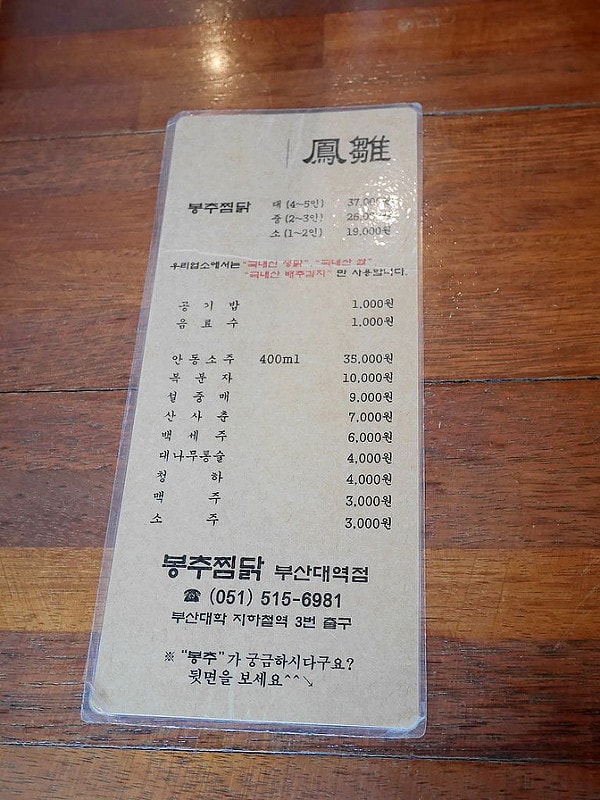 鳳雛
봉추찜닭 대 (4~5인) 37,000원
중 (2~3인)
소 (1~2인) 19,000원
우리업소에서는 "국내산 생닭", "국내산 쌀",
"국내산 배추김치" 만 사용합니다.
공기밥 1,000원
음료수 1,000원
안동소주 400ml 35,000원
복분자 10,000원
설중매 9,000원
산사춘 7,000원
백세주 6,000원
대나무통술 4,000원
청하 4,000원
맥주 3,000원
소주 3,000원
봉추찜닭 부산대역점
☎ (051) 515-6981
부산대학 지하철역 3번 출구
※ "봉추"가 궁금하시다구요?
뒷면을 보세요^^↘